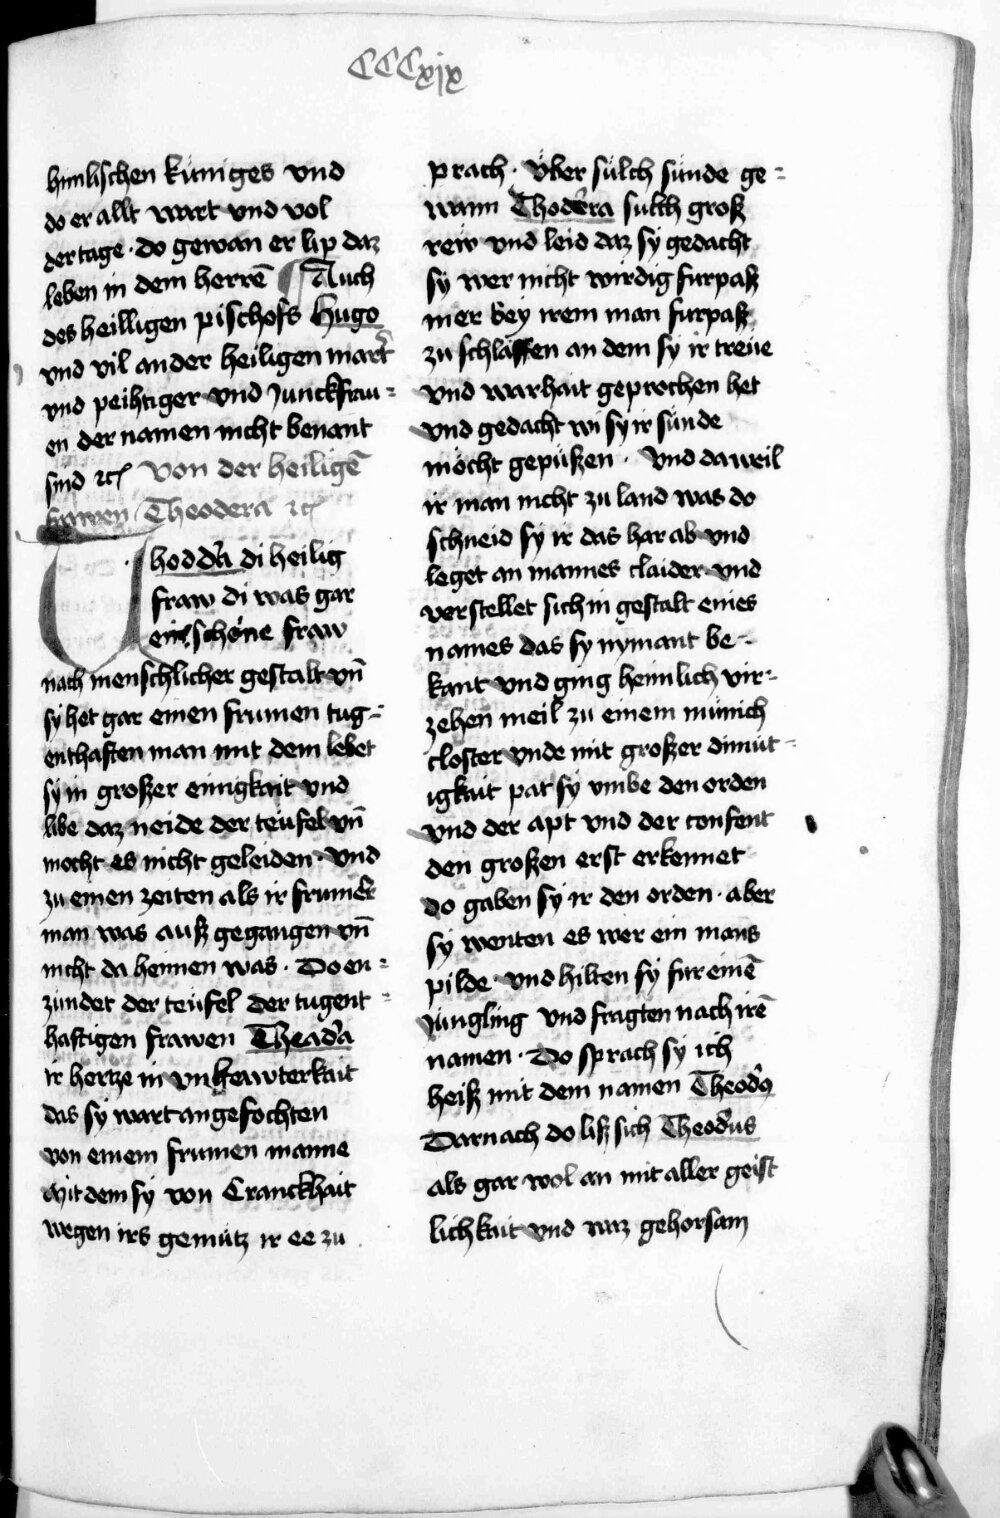 CCCxix
himlischen küniges vnd
do er allt wart vnd vol
der tage · do gewan er lip daz
leben in dem herrē ¶ Auch
des heilligen pischofs Hugo
vnd vil ander heiligen mart̄
vnd peihtiger vnd Junckfrau=
en der namen nicht benant
sind ꝛcꝭ Von der heiligē
frawen Theodera ꝛcꝭ
Thodd̄a di heilig
fraw di was gar
ein schöne fraw
nach menschlicher gestalt vn̄
sy het gar einen frumen tug=
enthaften man mit dem lebet
sy in großer einigkait vnd
libe daz neide der teüfel vn̄
mocht es nicht geleiden · Vnd
zu einen zeiten als ir frumer̄
man was auß gegangen vn̄
nicht da heimen was · Do en=
zundet der teüfel der tugent=
haftigen frawen Thead̄a
ir hertze in vnkewterkait
das sy wart angefochten
von einem frumen manne
Mit dem sy von Cranckhait
wegen irs gemütz ir ee zu
prach · Vber sülch sünde ge=
wann Thod̄era sulch groß
rew vnd leid daz sy gedacht
sy wer nicht wirdig furpaß
mer bey irem man furpaß
zu schlaffen an dem sy ir treüe
vnd warhait geprochen het
vnd gedacht wi sy ir sünde
möcht gepüßen · Vnd da weil
ir man nicht zu land was do
schneid sy ir das har ab vnd
leget an mannes claider vnd
verstellet sich in gestalt eines
names das sy nymant be=
kant vnd ging heimlich vir=
zehen meil zu einem münich
closter vnde mit großer dimüt=
igkait pat sy vmbe den orden
vnd der apt vnd der confent
den großen erst erkennet
do gaben sy ir den orden · aber
sy wenten es wer ein mans
pilde · vnd hilten sy fur einē
Jüngling vnd fragten nach irē
namen · Do sprach sy ich
heiß mit dem namen Theod̄ꝯ
Darnach do liß sich Theod̄us
als gar wol an mit aller geist
lichkait vnd waz gehorsam